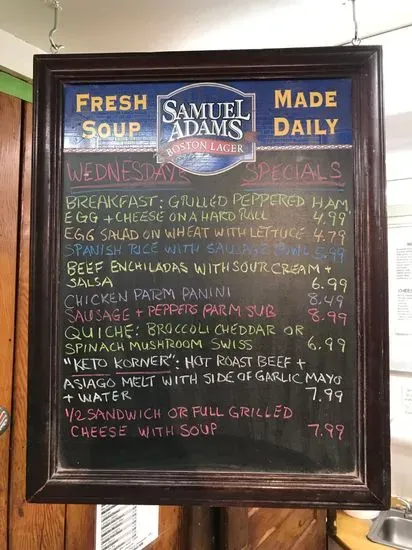 FRESH SOUP
SAMUEL ADAMS
BOSTON LAGER
MADE DAILY
WEDNESDAYS SPECIALS
BREAKFAST: GRILLED PEPPERED HAM
EGG + CHEESE ON A HARD ROLL 4.99
EGG SALAD ON WHEAT WITH LETTUCE 4.79
SPANISH RICE WITH SAUSAGE BOWL 5.99
BEEF ENCHILADAS WITH SOUR CREAM +
SALSA 6.99
CHICKEN PARM PANINI 8.49
SAUSAGE + PEPPERS PARM SUB 8.99
QUICHE: BROCCOLI CHEDDAR OR
SPINACH MUSHROOM SWISS 6.99
"KETO KORNER": HOT ROAST BEEF +
ASIAGO MELT WITH SIDE OF GARLIC MAYO
+ WATER 7.99
1/2 SANDWICH OR FULL GRILLED
CHEESE WITH SOUP 7.99